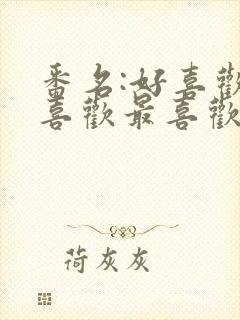 番名:好喜歡
喜歡最喜歡
荷灰灰